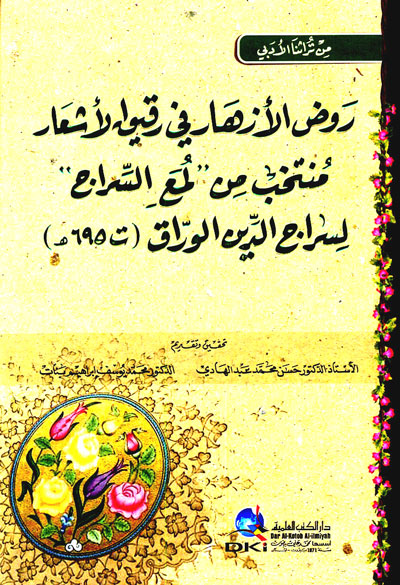 من تراثنا الأدبي
روض الأزهار في رقيق الأشعار
منتخب من "لمع السراج"
لسراج الدين الوراق (ت ٦٩٥ هـ)
تحقيق وتقديم
الأستاذ الدكتور حسن محمد عبد الهادي الدكتور محمد يوسف إبراهيم بنات
دار الكتب العلمية
Dar Al-Kotob Al-ilmiyah
DKi